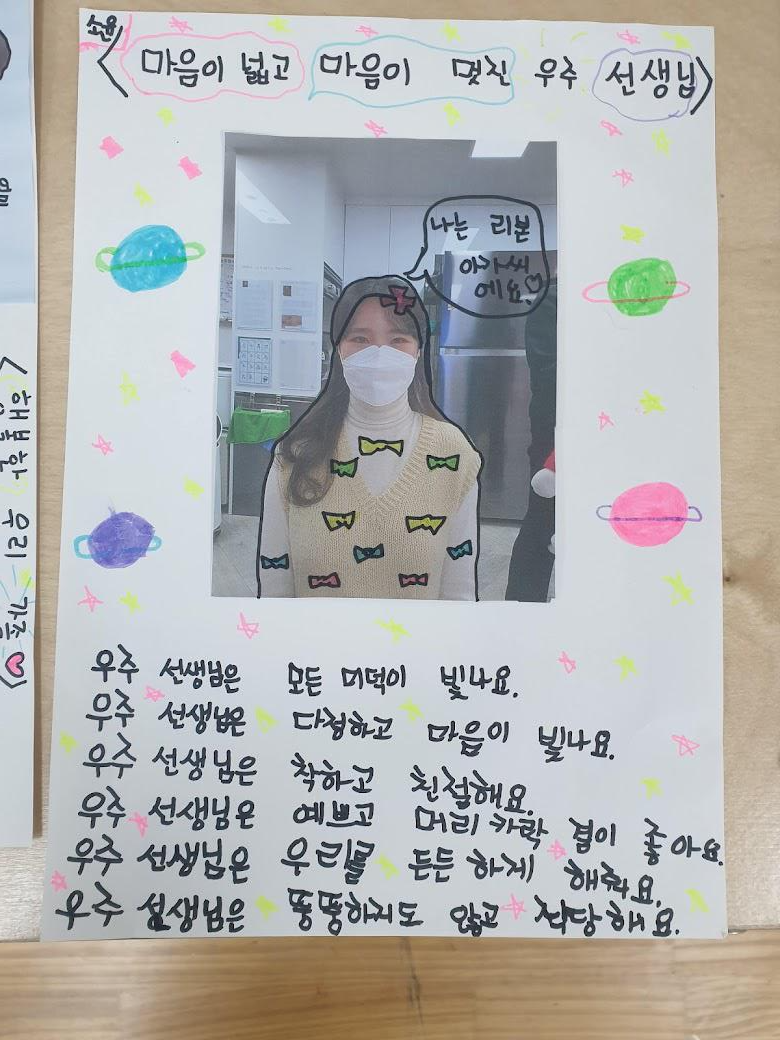 소윤
<마음이 넓고 마음이 멋진 우주 선생님>
나는 리본
아가씨
예요.♡
우주 선생님은 모든 미덕이 빛나요.
우주 선생님은 다정하고 마음이 빛나요.
우주 선생님은 착하고 친절해요.
우주 선생님은 예쁘고 머리카락 결이 좋아요.
우주 선생님은 우리를 든든하게 해줘요.
우주 선생님은 뚱뚱하지도 않고 적당해요.
<행복한 우리 가족♡>